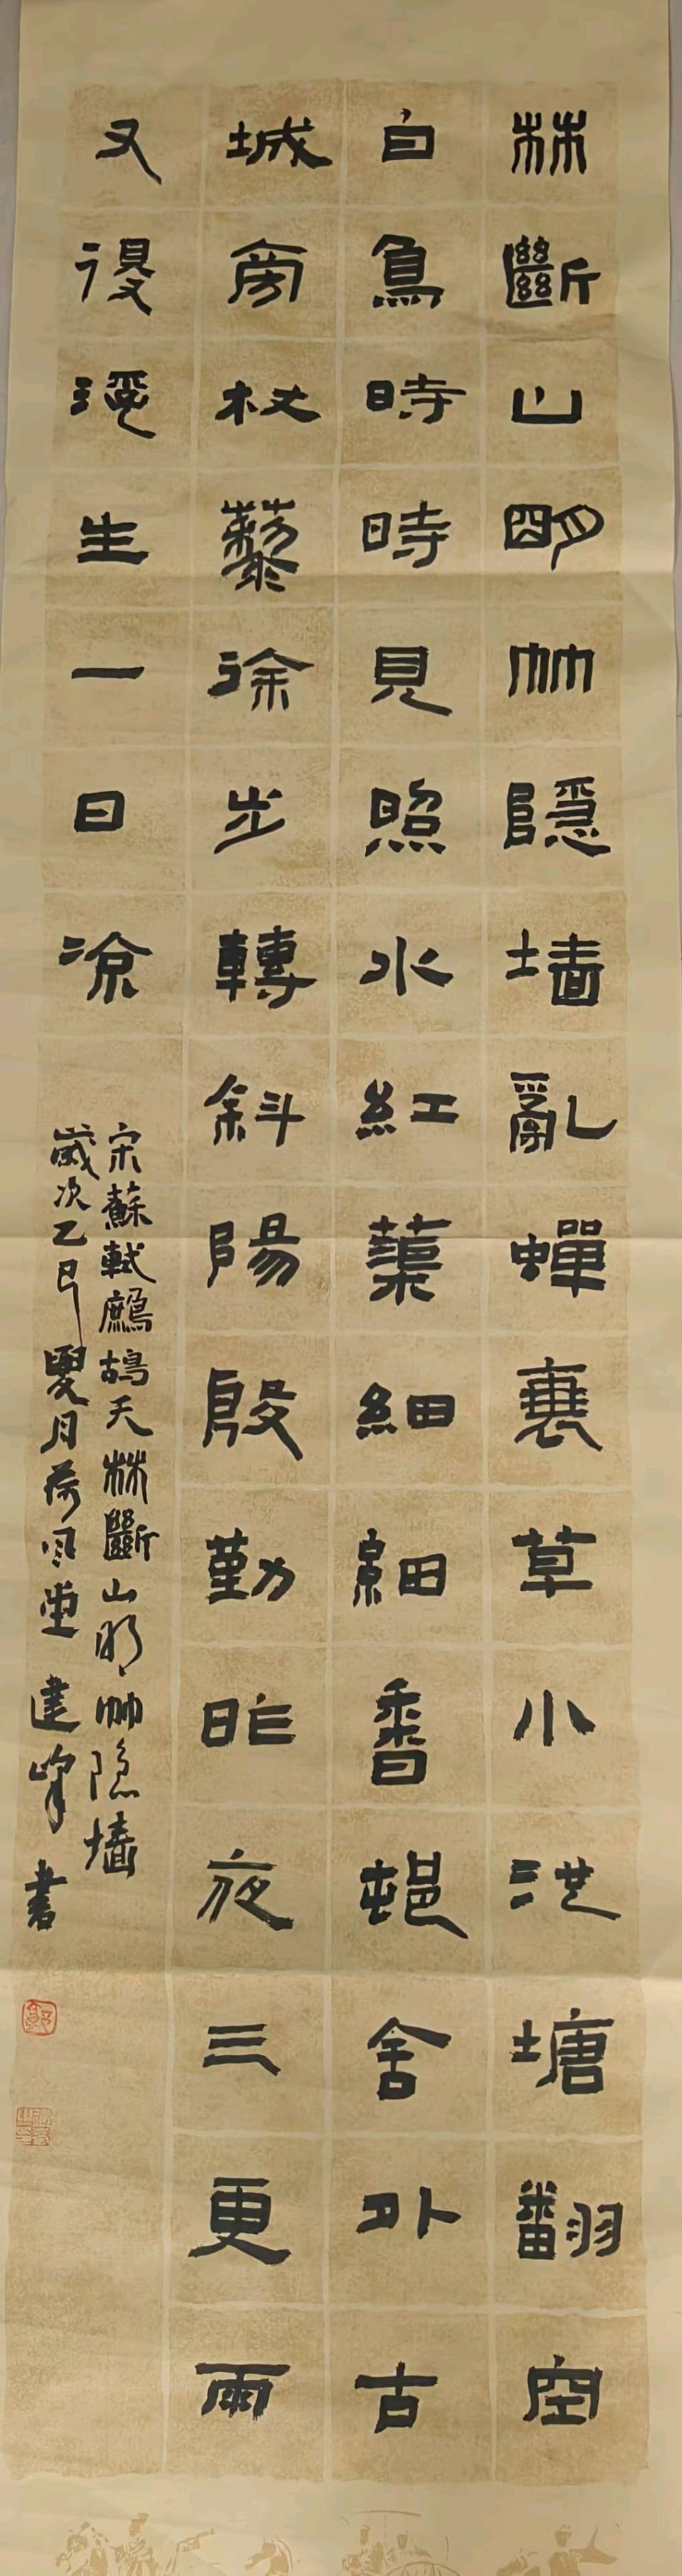 林斷山明竹隱墻亂蟬衰草小池塘翻空
白鳥時時見照水紅蕖細細香邨舍外古
城旁杖藜徐步轉斜陽殷勤昨夜三更雨
又得浮生一日凉
宋蘇軾鷓鴣天林斷山明竹隱墻
歲次乙巳夏月荷風堂建峰書